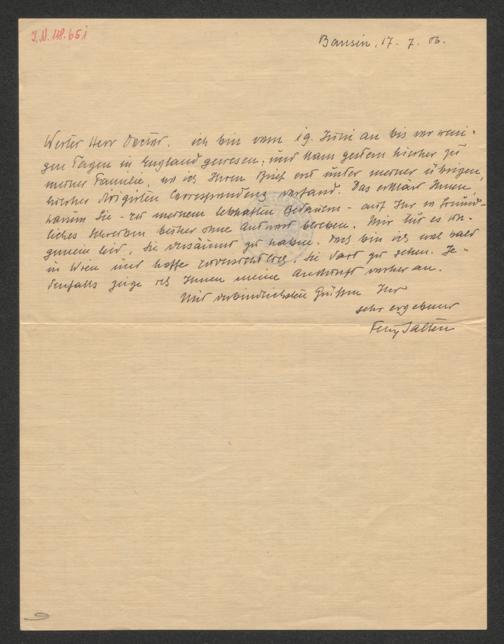 I.N. 118.651
Bansin, 17. 7. 06.
Werter Herr Doctor, ich bin vom 19. Juni an bis vor weni-
gen Tagen in England gewesen, und kam gestern hierher zu
meiner Familie, wo ich Ihren Brief erst unter meiner übrigen,
hierher dirigirten Correspondenz vorfand. Das erklärt Ihnen,
warum Sie – zu meinem lebhaften Bedauern – auf Ihr so freund-
liches Schreiben bisher ohne Antwort blieben. Mir tut es un-
gemein leid, Sie versäumt zu haben. Doch bin ich wol bald
in Wien und hoffe zuversichtlich, Sie dort zu sehen. Je-
denfalls zeige ich Ihnen meine Ankunft vorher an.
Mit verbindlichsten Grüßen Ihr
sehr ergebener
Felix Salten